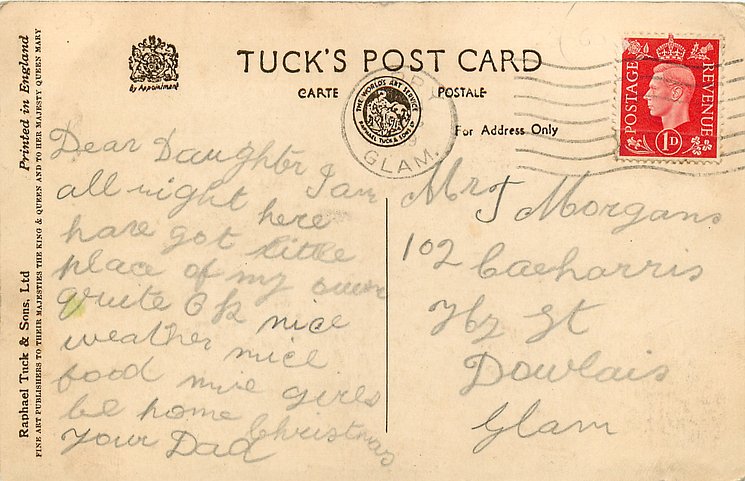 Printed in England
Raphael Tuck & Sons, Ltd
FINE ART PUBLISHERS TO THEIR MAJESTIES THE KING & QUEEN AND TO HER MAJESTY QUEEN MARY
By Appointment
TUCK'S POST CARD
CARTE POSTALE
THE WORLD'S ART SERVICE
RAPHAEL TUCK & SONS LD
GLAM.
For Address Only
POSTAGE
REVENUE
1D
Dear Daughter I am
all night here
have got little
place of my own
quite O k nice
weather nice
food nice girls
be home Christmas
Your Dad
Mrs J Morgans
102 Caeharris
St
Dowlais
Glam